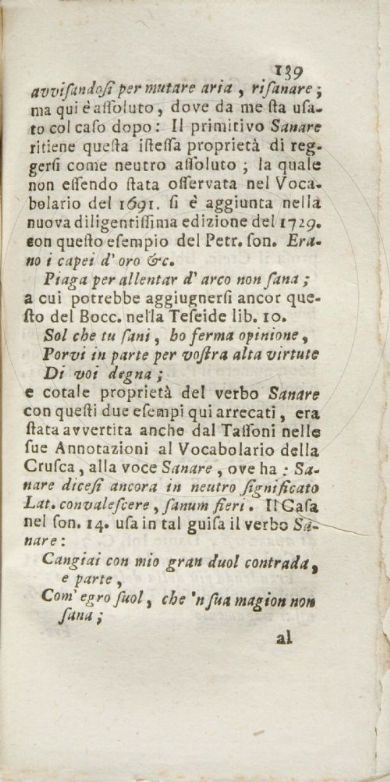 139
avviſandoſi per mutare aria, riſanare;
ma qui è aſſoluto, dove da me ſta uſa-
to col caſo dopo: Il primitivo Sanare
ritiene queſta iſteſſa proprietà di reg-
gerſi come neutro aſſoluto; la quale
non eſſendo ſtata oſſervata nel Voca-
bolario del 1691. ſi è aggiunta nella
nuova diligentiſſima edizione del 1729.
con queſto eſempio del Petr. ſon. Era-
no i capei d' oro &c.
Piaga per allentar d' arco non ſana;
a cui potrebbe aggiugnerſi ancor que-
ſto del Bocc. nella Teſeide lib. 10.
Sol che tu ſani, ho ferma opinione,
Porvi in parte per voſtra alta virtute
Di voi degna;
e cotale proprietà del verbo Sanare
con queſti due eſempi qui arrecati, era
ſtata avvertita anche dal Taſſoni nelle
ſue Annotazioni al Vocabolario della
Cruſca, alla voce Sanare, ove ha: Sa-
nare diceſi ancora in neutro ſignificato
Lat. convaleſcere, ſanum fieri. Il Caſa
nel ſon. 14. uſa in tal guiſa il verbo Sa-
nare:
Cangiai con mio gran duol contrada,
e parte,
Com' egro ſuol, che 'n ſua magion non
ſana;
al